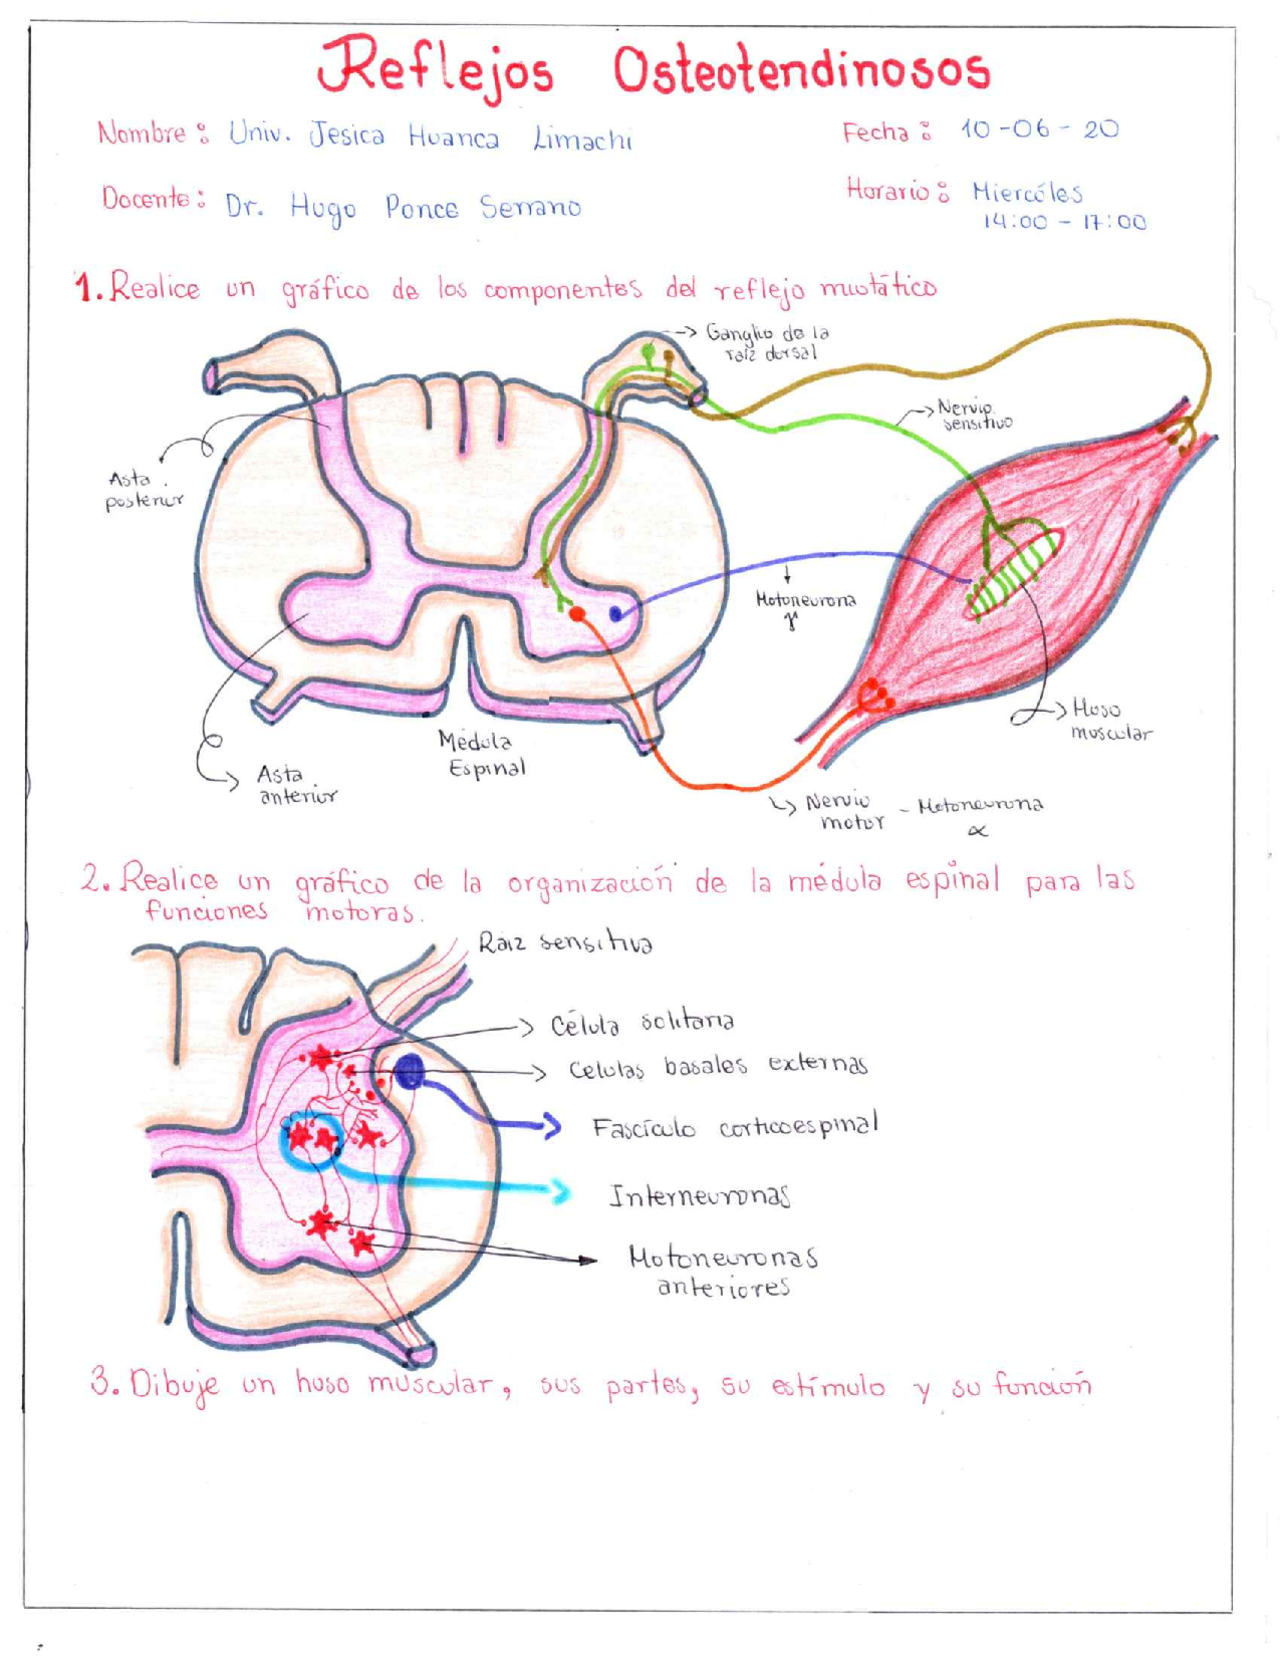 Reflejos Osteotendinosos
Nombre: Univ. Jesica Huanca Limachi
Fecha: 10-06-20
Docente: Dr. Hugo Ponce Serrano
Horario: Miercóles
14:00 - 17:00
1. Realice un gráfico de los componentes del reflejo miotático
Ganglio de la
raíz dorsal
Nervio
sensitivo
Asta
posterior
Motoneurona
γ
Huso
muscular
Médula
Espinal
Asta
anterior
Nervio - Motoneurona
motor α
2. Realice un gráfico de la organización de la médula espinal para las
funciones motoras.
Raiz sensitiva
Célula solitaria
Celulas basales externas
Fascículo corticoespinal
Interneuronas
Motoneuronas
anteriores
3. Dibuje un huso muscular, sus partes, su estímulo y su función